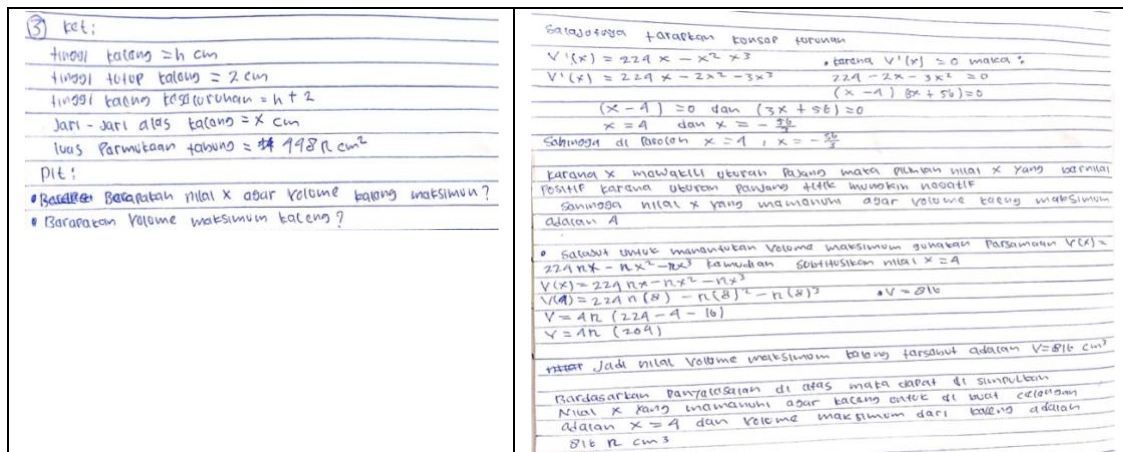 ③ ket:
tinggi kaleng = h cm
tinggi tutup kaleng = 2 cm
tinggi kaleng keseluruhan = h + 2
Jari - Jari alas kaleng = x cm
luas Permukaan tabung = 448π cm²
Dit:
• Berapakah nilai x agar volume kaleng maksimum?
• Berapakah volume maksimum kaleng?
Selajutnya terapkan konsep turunan
V'(x) = 224 x - x² x³
V'(x) = 224 x - 2x² - 3x³
• karena V'(x) = 0 maka:
224 - 2x - 3x² = 0
(x - 4) (3x + 56) = 0
(x - 4) = 0 dan (3x + 56) = 0
x = 4 dan x = - 56/3
Sehingga di Peroleh x = 4, x = - 56/3
karena x mewakili ukuran Pajang maka pilihan nilai x yang bernilai
Positif karena ukuran panjang tidak mungkin negatif
Sehingga nilai x yang memenuhi agar volume kaleng maksimum
adalah 4
• untuk menentukan volume maksimum gunakan Persamaan V(x) =
224 πx - πx² - πx³ kemudian Subtitusikan nilai x = 4
V(x) = 224 πx - πx² - πx³
V(4) = 224 π (8) - π (8)² - π (8)³
V = 4π (224 - 4 - 16)
V = 4π (204)
• V = 816
Jadi nilai volume maksimum kaleng tersebut adalah V = 816 cm³
Berdasarkan Penyelesaian di atas maka dapat di simpulkan
Nilai x yang memenuhi agar kaleng untuk di buat celengan
adalah x = 4 dan volume maksimum dari kaleng adalah
816 π cm³